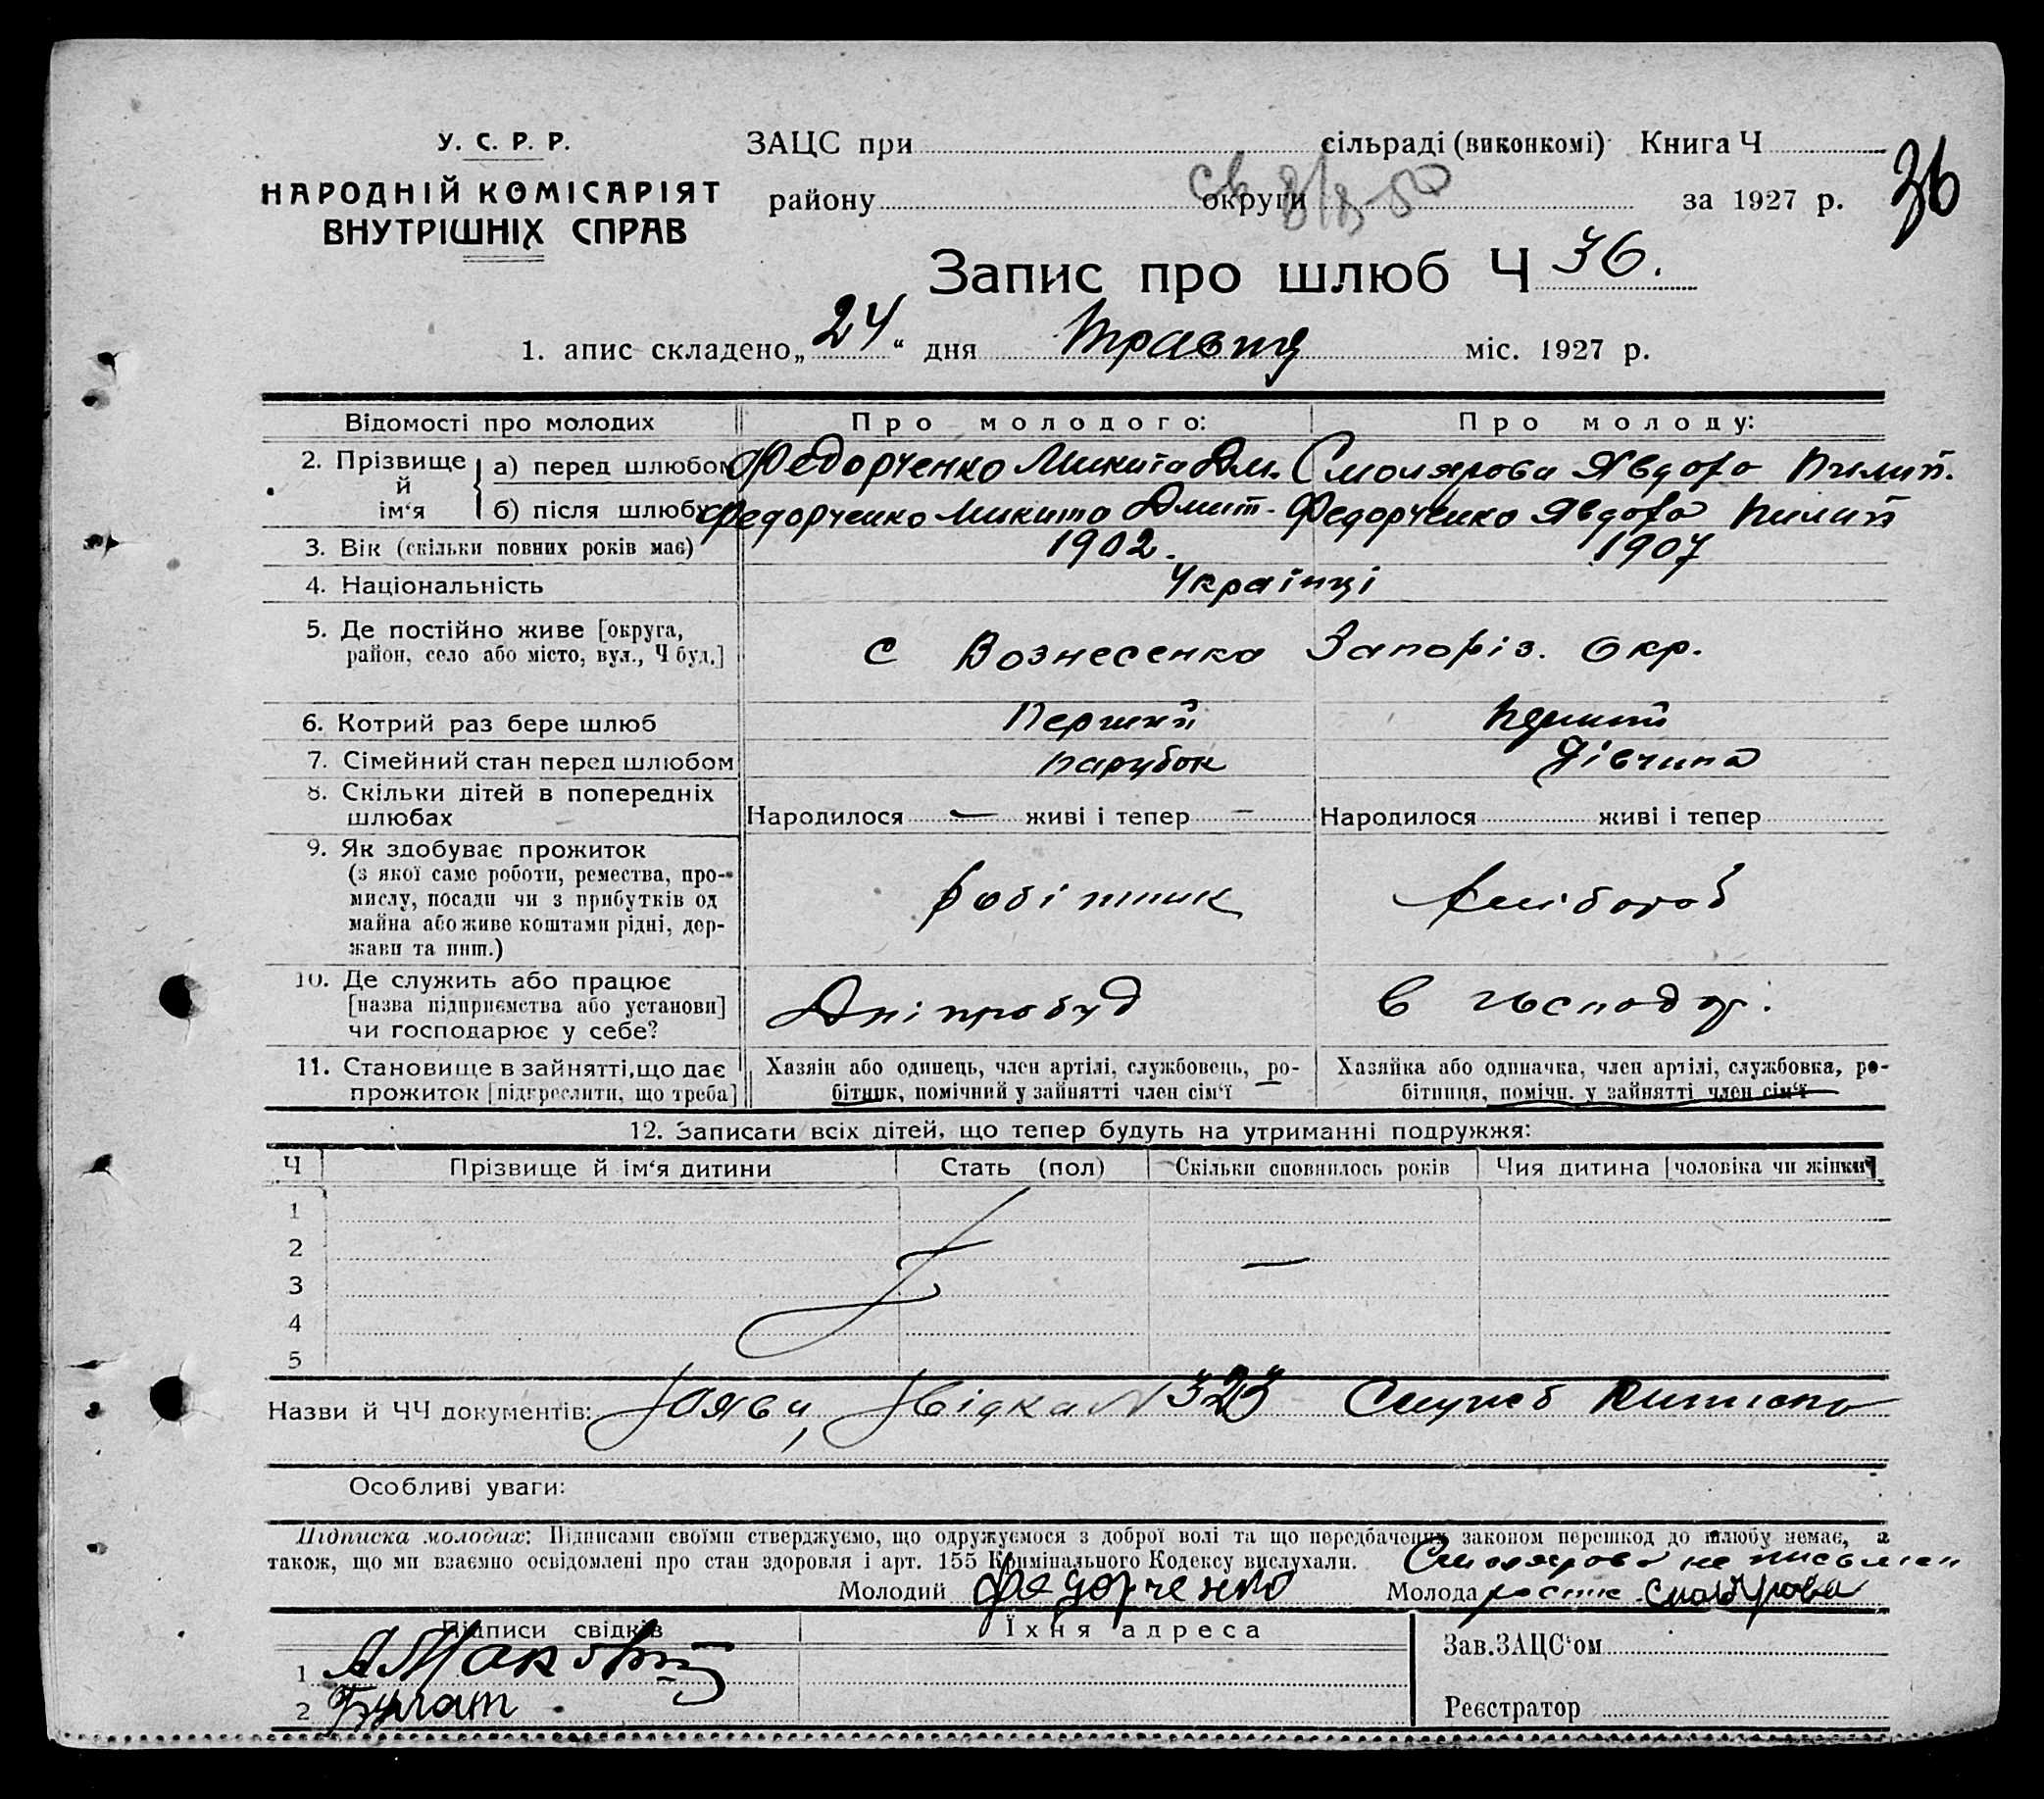 У. С. Р. Р.
НАРОДНІЙ КОМІСАРІЯТ
ВНУТРІШНІХ СПРАВ
ЗАЦС при сільраді (виконкомі) Книга Ч
36
району округи за 1927 р.
Запис про шлюб Ч 36.
1. апис складено „24“ дня Травня міс. 1927 р.
Відомості про молодих Про молодого: Про молоду:
2. Прізвище й ім‘я
а) перед шлюбом Федорченко Микита Дм. Смолярова Явдоха Пилип.
б) після шлюбу Федорченко Микита Дмит- Федорченко Явдоха Пилип
3. Вік (скільки повних років має) 1902. 1907
4. Національність Українці
5. Де постійно живе [округа,
район, село або місто, вул., Ч буд.] с Вознесенка Запоріз. Окр.
6. Котрий раз бере шлюб Перший Перший
7. Сімейний стан перед шлюбом парубок дівчина
8. Скільки дітей в попередніх
шлюбах Народилося — живі і тепер — Народилося живі і тепер
9. Як здобуває прожиток
(з якої саме роботи, ремества, про-
мислу, посади чи з прибутків од
майна або живе коштами рідні, дер-
жави та инш.) робітник хлібороб
10. Де служить або працює
[назва підприємства або установи]
чи господарює у себе? Дніпробуд в господар.
11. Становище в зайнятті, що дає
прожиток [підкреслити, що треба]
Хазяїн або одинець, член артілі, службовець, ро-
бітник, помічний у зайнятті член сім‘ї
Хазяйка або одиначка, член артілі, службовка, ро-
бітниця, помічн. у зайнятті член сім‘ї
12. Записати всіх дітей, що тепер будуть на утриманні подружжя:
Ч Прізвище й ім‘я дитини Стать (пол) Скільки сповнилось років Чия дитина [чоловіка чи жінки]
1
2
3
4
5
Назви й ЧЧ документів: Заяви, Звідка N 323
Особливі уваги:
Підписка молодих: Підписами своїми стверджуємо, що одружуємося з доброї волі та що передбачених законом перешкод до шлюбу немає, а
також, що ми взаємно освідомлені про стан здоровля і арт. 155 Кримінального Кодексу вислухали. Смолярова не письмен
Молодий Федорченко Молода Смолярова
Підписи свідків Їхня адреса
Зав. ЗАЦС‘ом
1
2 Булат
Реєстратор